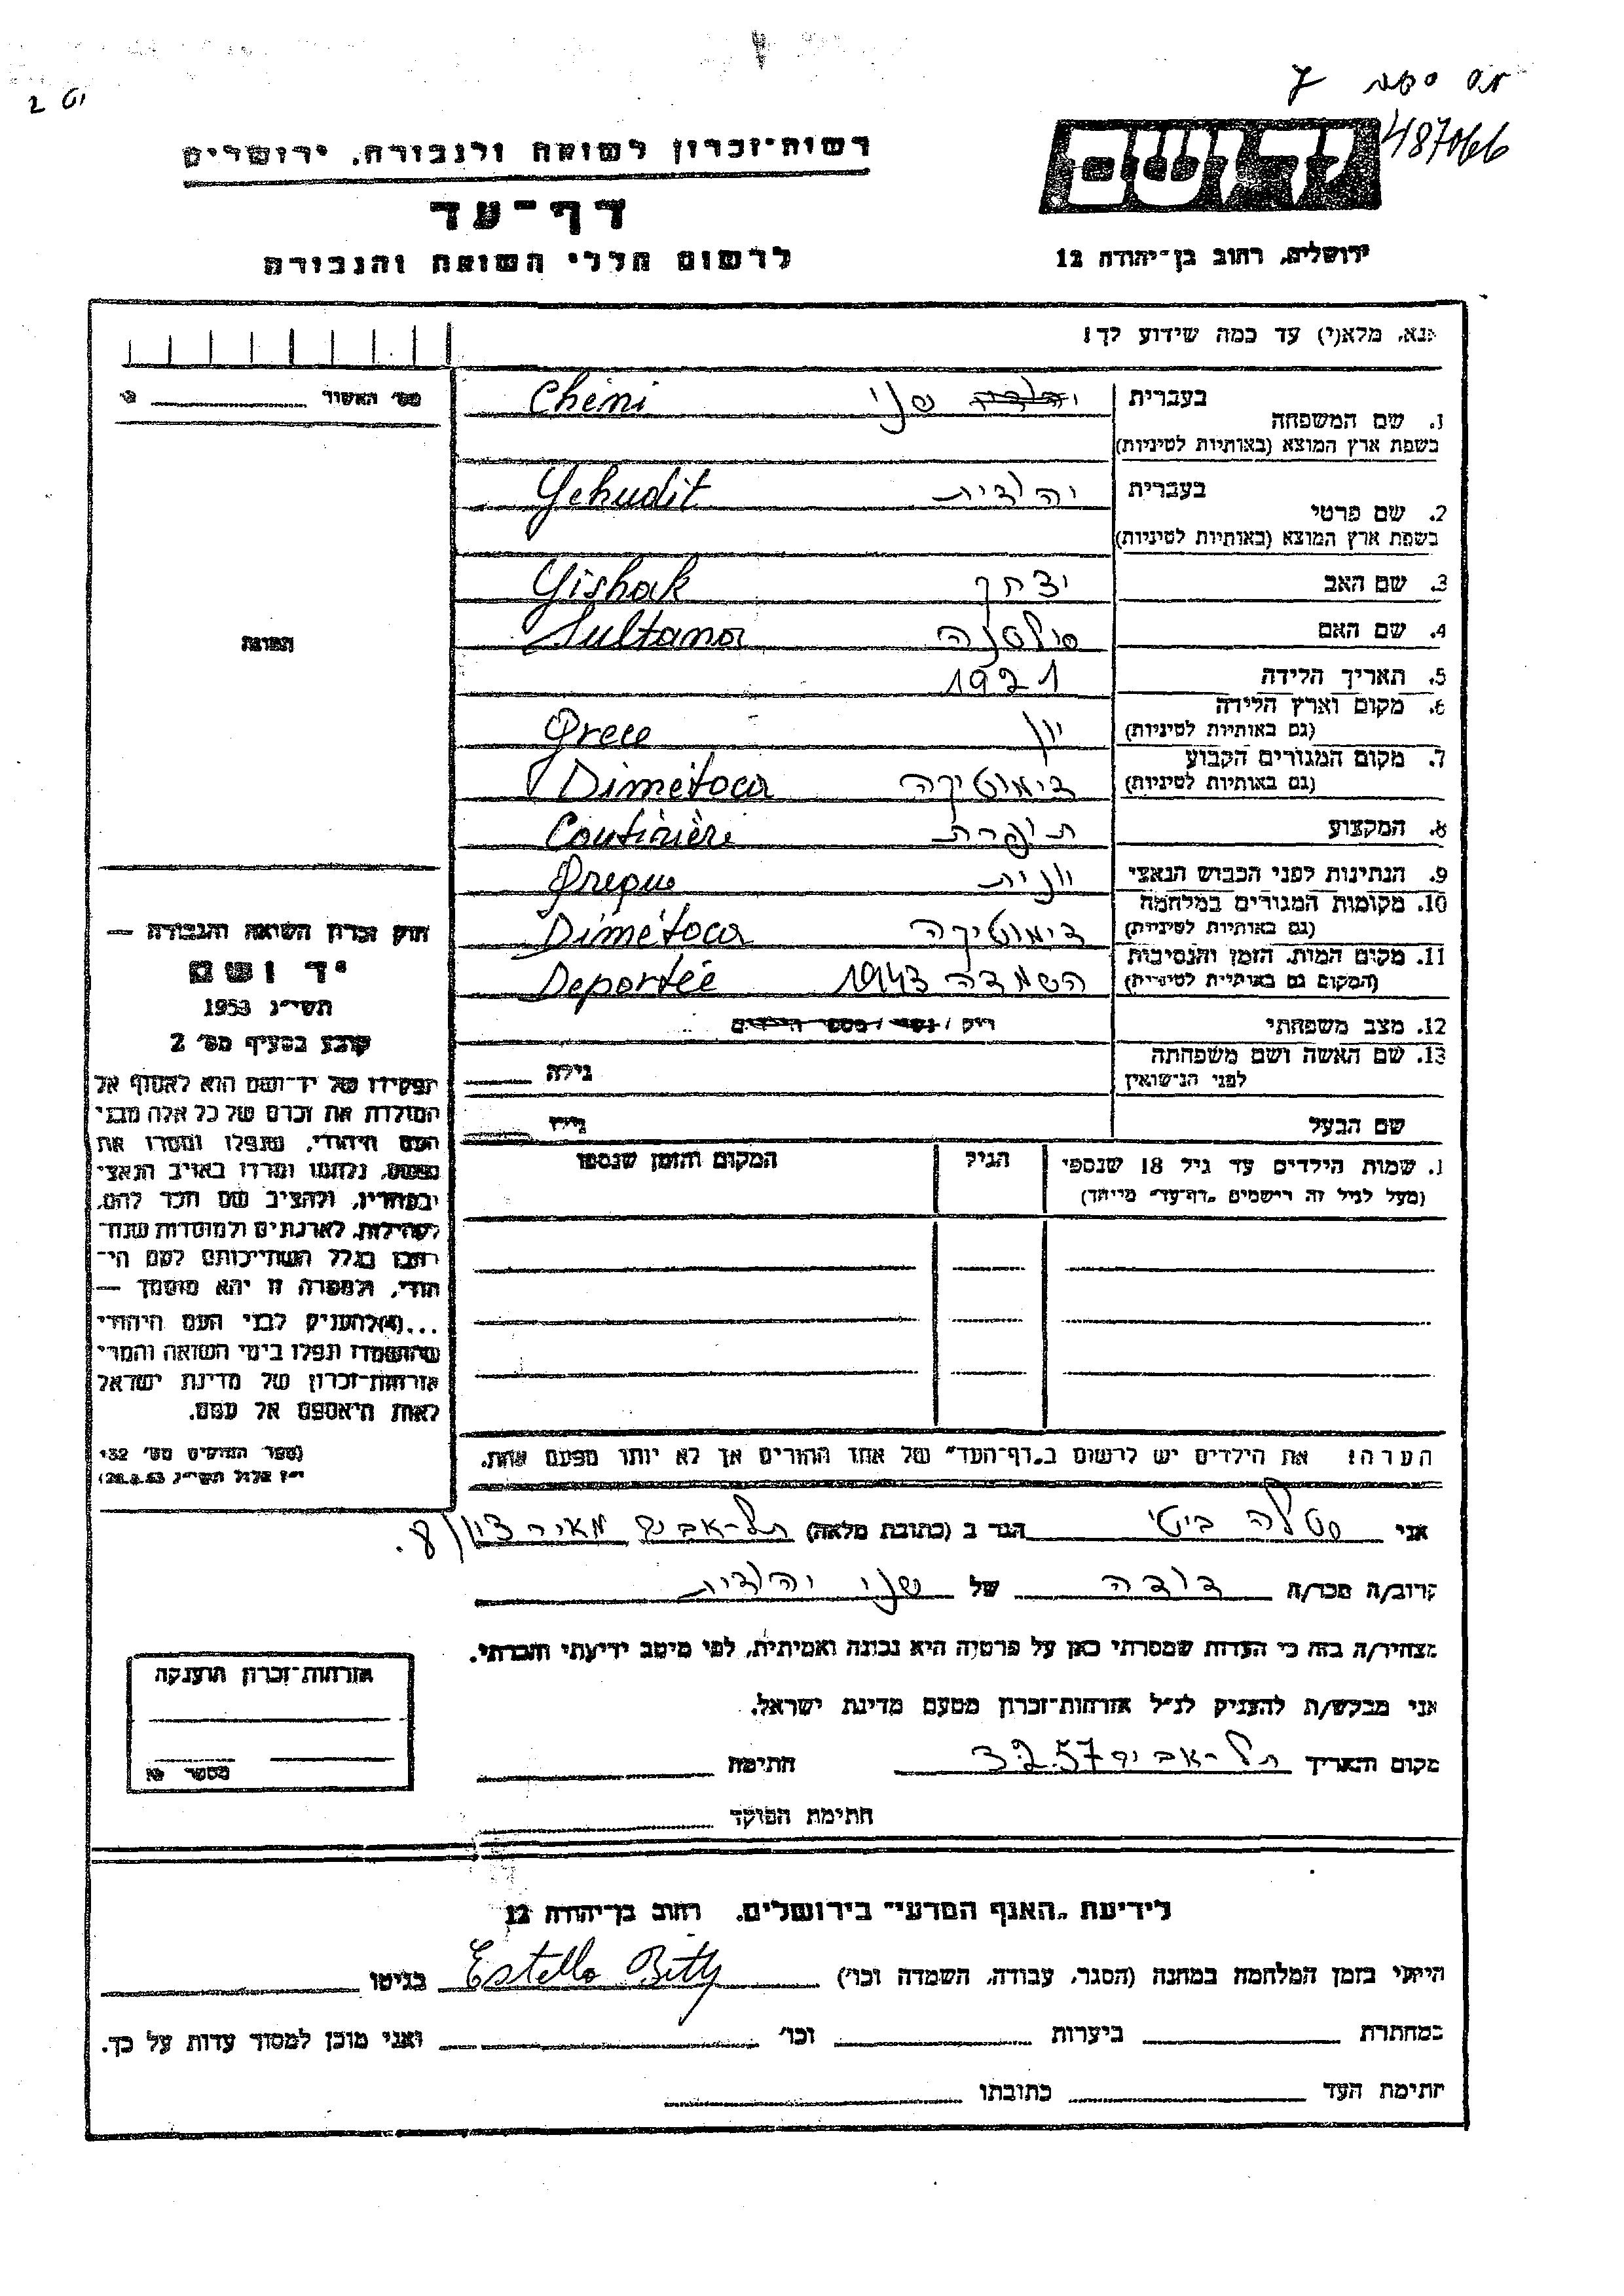 487066
רשות-זכרון לשואה ולגבורה, ירושלים
דף-עד
לרשום חללי השואה והגבורה
יד ושם
ירושלים, רחוב בן-יהודה 12
אנא, מלא(י) עד כמה שידוע לך!
מס' האשור
1. שם המשפחה
בעברית שני Chéni
בשפת ארץ המוצא (באותיות לטיניות)
2. שם פרטי
בעברית יהודית Yehudit
בשפת ארץ המוצא (באותיות לטיניות)
3. שם האב יצחק Yishak
4. שם האם סולטנה Sultana
5. תאריך הלידה 1921
6. מקום וארץ הלידה
(גם באותיות לטיניות) יון Grece
7. מקום המגורים הקבוע
(גם באותיות לטיניות) דימוטיקה Dimétoca
8. המקצוע תופרת Coutirière
9. הנתינות לפני הכבוש הנאצי יונית Greque
10. מקומות המגורים במלחמה
(גם באותיות לטיניות) דימוטיקה Dimétoca
11. מקום המות, הזמן והנסיבות
(המקום גם באותיות לטיניות) השמדה 1943 Deportée
12. מצב משפחתי רוק / נשוי / מספר הילדים
13. שם האשה ושם משפחתה
לפני הנישואין גילה
שם הבעל גילו
שמות הילדים עד גיל 18 שנספו
(מעל לגיל זה רישמים "דף-עד" מיוחד)
הגיל
המקום והזמן שנספו
הערה! את הילדים יש לרשום ב"דף-העד" של אחד ההורים אך לא יותר מפעם אחת.
התמונה
חוק זכרון השואה והגבורה —
יד ושם
תשי"ג 1953
קובע בסעיף מס' 2
תפקידו של יד-ושם הוא לאסוף אל
המולדת את זכרם של כל אלה מבני
העם היהודי, שנפלו ומסרו את
נפשם, נלחמו ומרדו באויב הנאצי
ובעוזריו, ולהציב שם וזכר להם,
לקהילות, לארגונים ולמוסדות שנח-
רבו בגלל השתייכותם לעם היה-
הודי, ולמטרה זו יהא מוסמך —
...(4)להעניק לבני העם היהודי
שהושמדו ונפלו בימי השואה והמרי
אזרחות-זכרון של מדינת ישראל
לאות היאספם אל עמם.
(ספר החוקים מס' 132
י"ז אלול תשי"ג 28.8.53)
אני סטלה ביטי הגר ב (כתובת מלאה) תל-אביב מאיר דיזנגוף 8.
קרוב/ה מכר/ה דודה של שני יהודית
מצהיר/ה בזה כי העדות שמסרתי כאן על פרטיה היא נכונה ואמיתית, לפי מיטב ידיעתי והכרתי.
אני מבקש/ת להעניק לנ"ל אזרחות-זכרון מטעם מדינת ישראל.
מקום ותאריך תל-אביב 3.2.57 חתימה
חתימת הפוקד
אזרחות-זכרון הוענקה
מספר
לידיעת "האגף המדעי" בירושלים, רחוב בן-יהודה 12
הייתי בזמן המלחמה במחנה (הסגר, עבודה, השמדה וכו') Estella Bitty בגיטו
במחתרת ביערות וכו' ואני מוכן למסור עדות על כך.
חתימת העד כתובתו